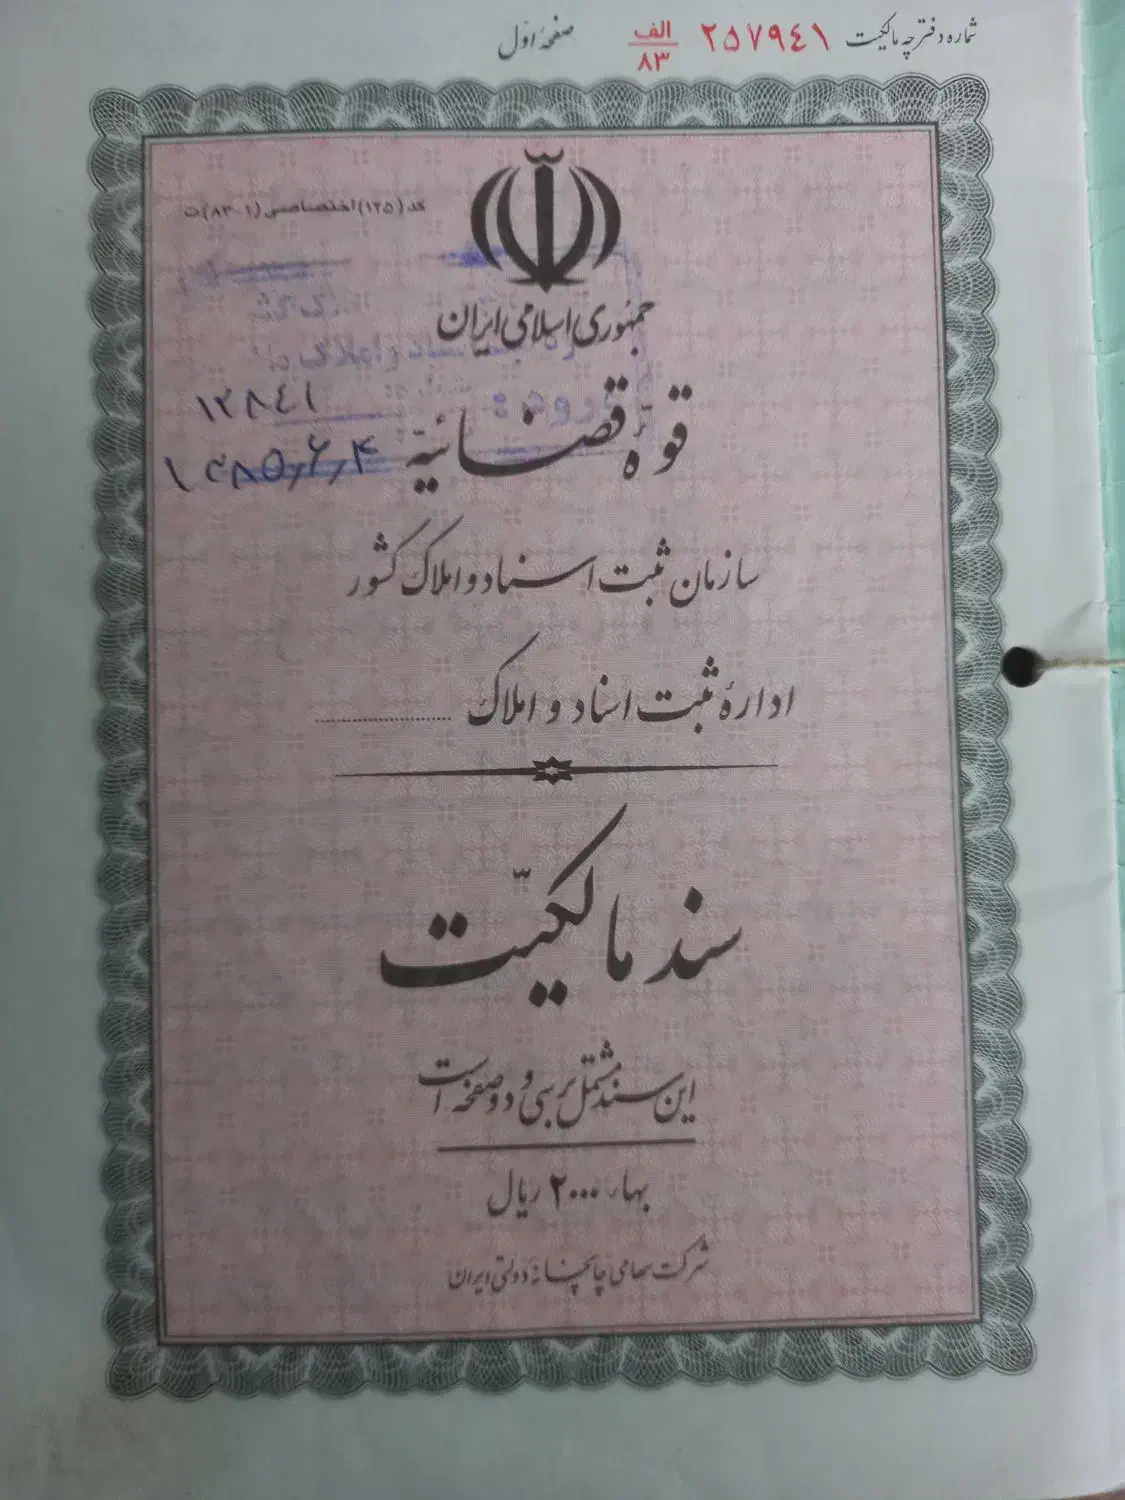 شماره دفترچه مالکیت ۲۵۷۹٤۱ الف/۸۳ صفحه اول
کد (۱۲۵) اختصاصی (۸۳۰۱) ت
جمهوری اسلامی ایران
اسناد و املاک
۱۲۸٤۱
ورود :
۱۳۸۵,۶,۴
قوه قضائیه
سازمان ثبت اسناد و املاک کشور
ادارهٔ ثبت اسناد و املاک ....................
سند مالکیت
این سند مشتمل بر سی و دو صفحه است
بهاء ۲۰۰۰ ریال
شرکت سهامی چاپخانه دولتی ایران